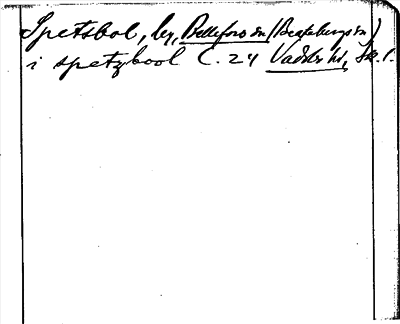 Spetsbol, by, Belleforo sn (Bergaborgs sn)
i spetzbool C. 24 Vadsbo hd, Sk. l.